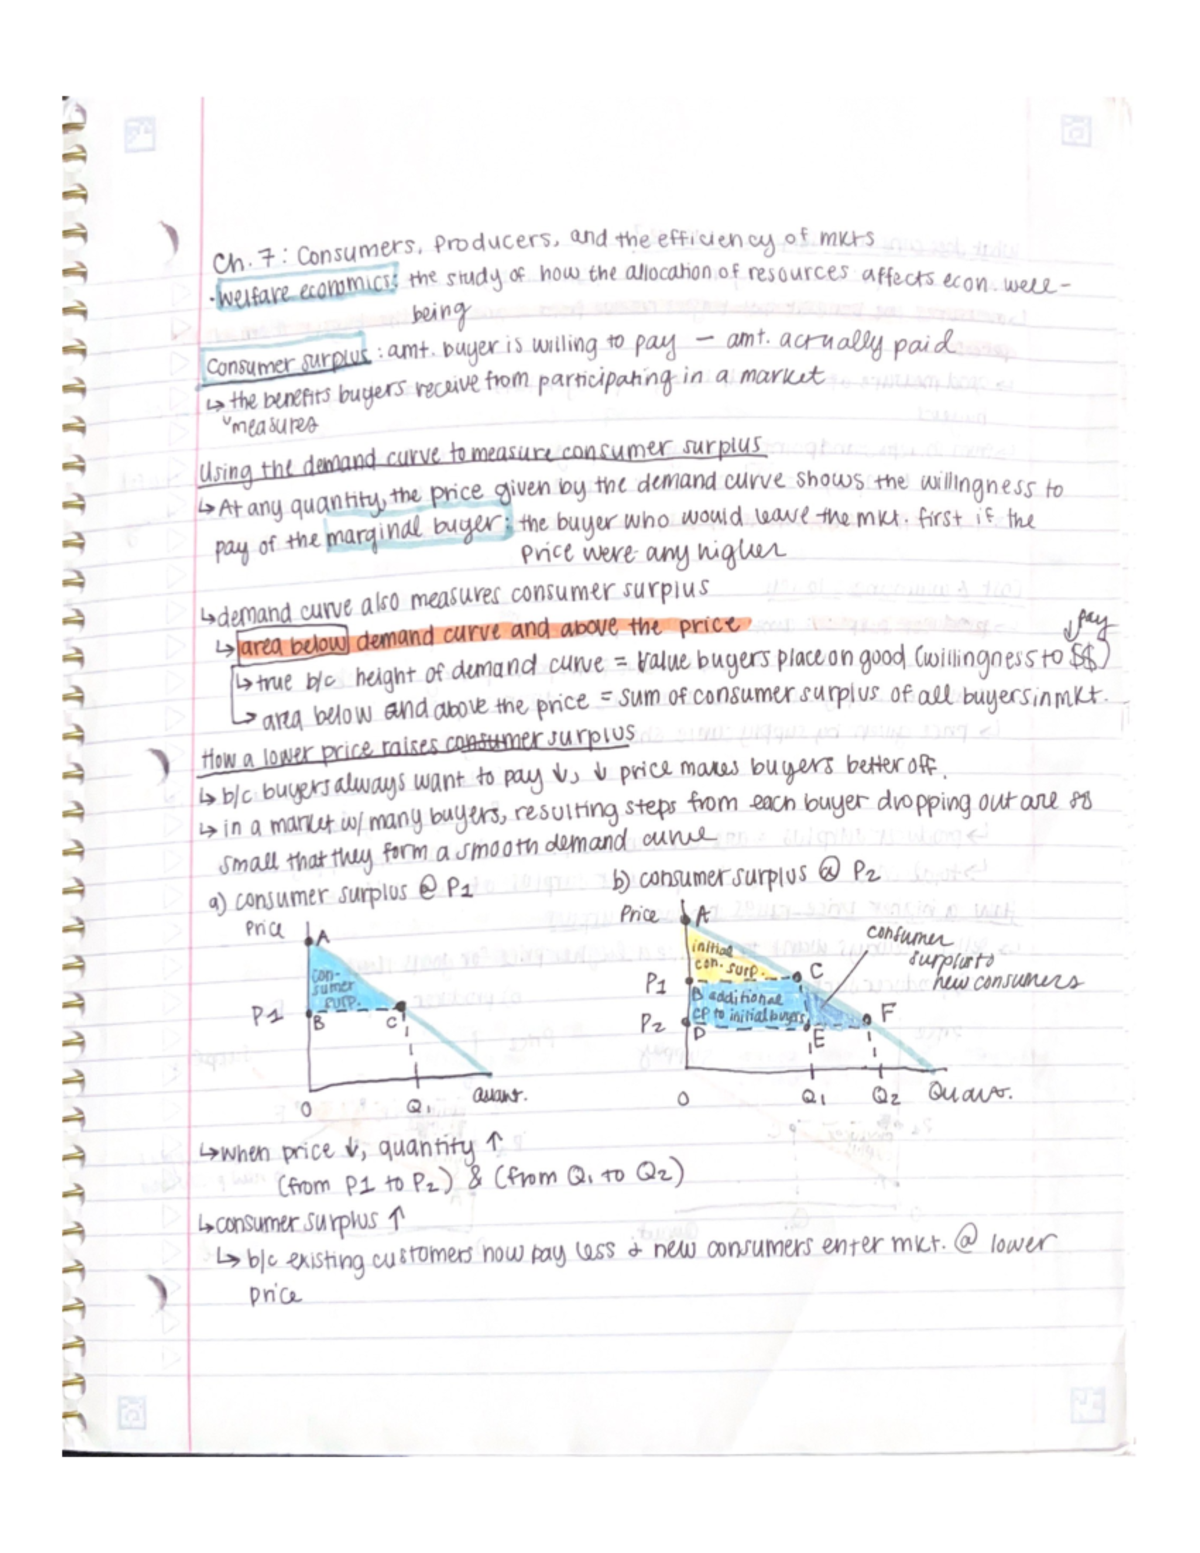 Ch. 7: Consumers, Producers, and the efficiency of mkts
·welfare economics: the study of how the allocation of resources affects econ. well-
being
Consumer surplus: amt. buyer is willing to pay — amt. actually paid
↳ the benefits buyers receive from participating in a market
measures
Using the demand curve to measure consumer surplus
↳ At any quantity, the price given by the demand curve shows the willingness to
pay of the marginal buyer: the buyer who would leave the mkt. first if the
price were any higher
↳ demand curve also measures consumer surplus
↳ area below demand curve and above the price
pay
↳ true b/c height of demand curve = value buyers place on good (willingness to $$)
↳ area below and above the price = sum of consumer surplus of all buyers in mkt.
How a lower price raises consumer surplus
↳ b/c buyers always want to pay ↓, ↓ price makes buyers better off.
↳ in a market w/ many buyers, resulting steps from each buyer dropping out are so
small that they form a smooth demand curve
a) consumer surplus @ P1
b) consumer surplus @ P2
Price
A
con-
sumer
surp.
P1
B
C
0
Q1
Quant.
Price
A
initial
con. surp.
C
consumer
surplus to
new consumers
P1
B additional
CP to initial buyers
F
P2
D
E
0
Q1
Q2
Quant.
↳ when price ↓, quantity ↑
(from P1 to P2) & (from Q1 to Q2)
↳ consumer surplus ↑
↳ b/c existing customers now pay less & new consumers enter mkt. @ lower
price